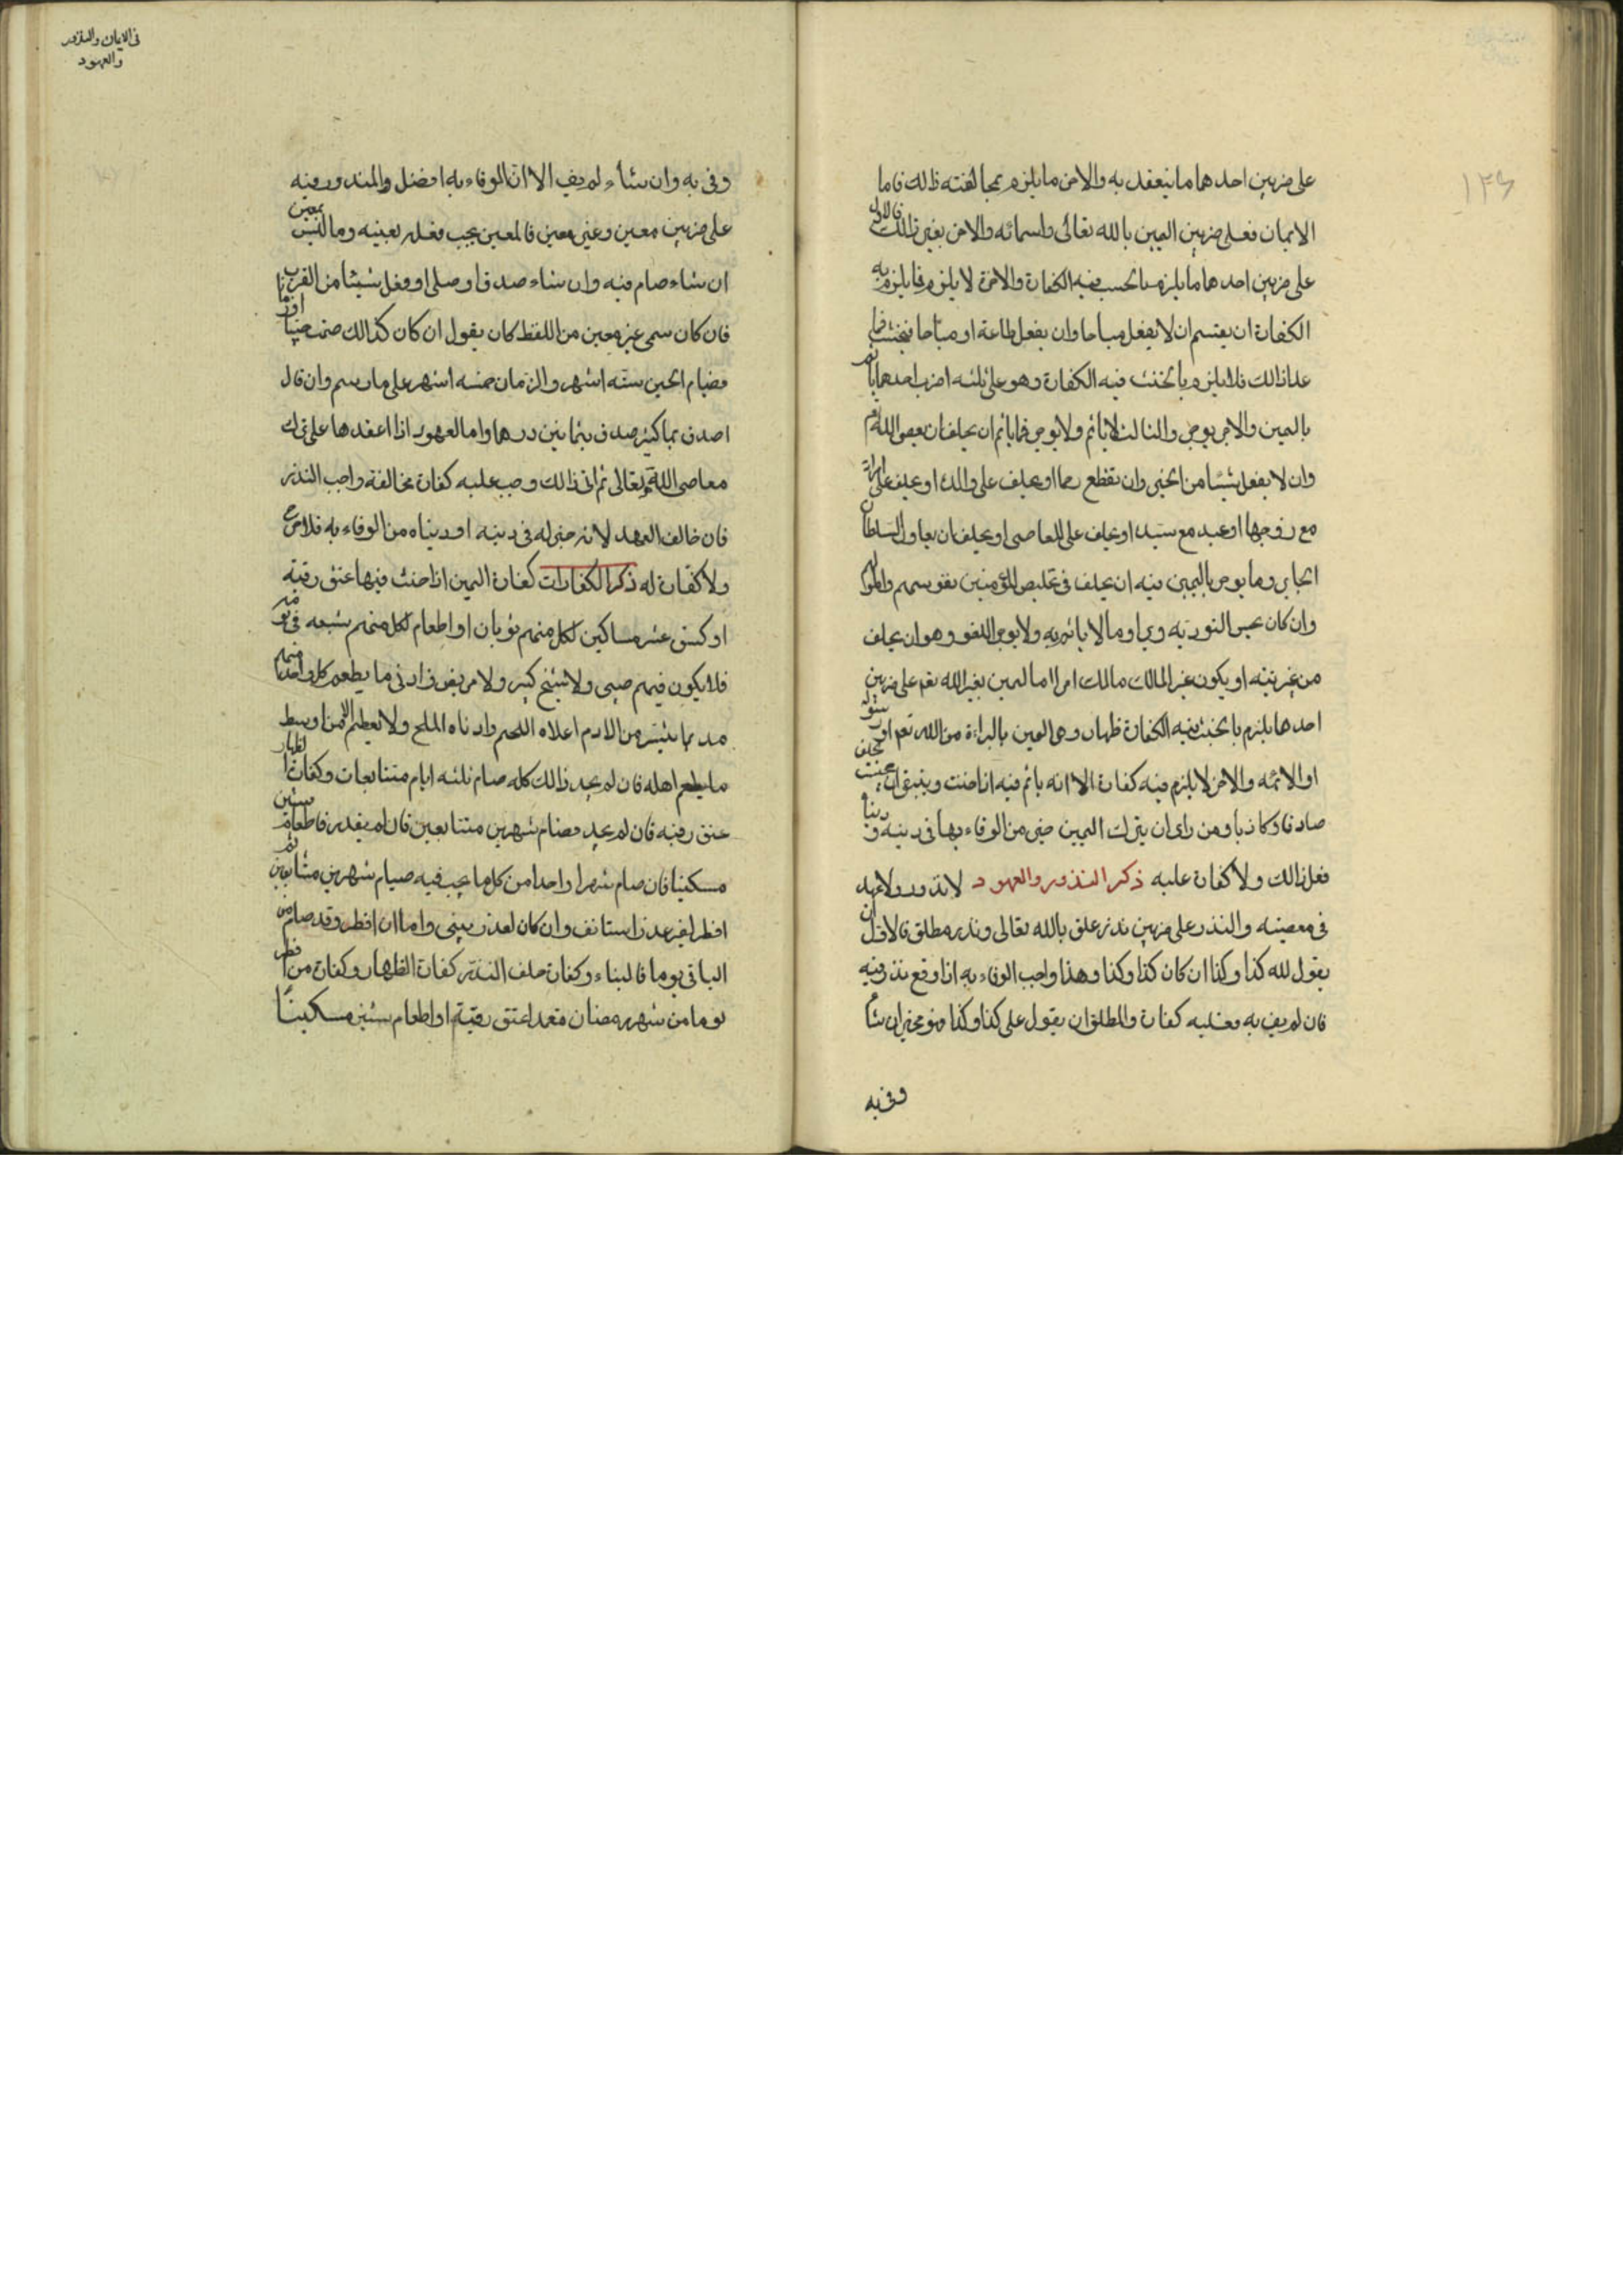 ١٣٤
على ضربين احدهما ما ينعقد به والاخر ما يلزم بمخالفته ذلك فاما
الايمان فعلى ضربين اليمين بالله تعالى واسمائه والاخر بغير ذالك فالاول
على ضربين احدهما ما يلزم بالحنث فيه الكفارة والاخرة لا يلزم فما يلزم به
الكفارة ان يقسم ان لا يفعل مباحا وان يفعل طاعة او مباحا فيحنث فاما
عدا ذالك فلا يلزم بالحنث فيه الكفارة وهو على ثلثه اضرب احدها ياثم
باليمين والاخر يوجر والثالث لا ياثم ولا يوجر فما ياثم ان يحلف ان يعصى الله
وان لا يفعل شيئا من الخير وان تقطع رحما او يحلف على والد او يحلف على امراة
مع زوجها او عبد مع سيد او يحلف على المعاصى او يحلف ان يعاون السلطان
الجابر وما يوجر باليمين فيه ان يحلف فى تخليص المؤمنين نفوسهم واموا
وان كان يحسن التورية ورى وما لا ياثم به ولا يوجر اللغو وهو ان يحلف
من غير نية او يكون غير المالك مالك امرا اما اليمين بغير الله تعم على ضربين
احدها يلزم بالحنث فيه الكفارة ظهار وهى اليمين بالبراءة من الله تعم او رسوله
او الائمه والاخر لا يلزم فيه كفارة الا انه ياثم فيه اذا حنث وينبغى ان يجنب يحلف
صادقا وكاذبا ومن راى ان يترك اليمين خير من الوفاء بها فى دينه و دنياه
فعل ذالك ولا كفارة عليه ذكر النذور والعهود لا نذر ولا عهد
فى معصيته والنذر على ضربين نذر علق بالله تعالى ونذر مطلق فالاول ان
يقول لله كذا وكذا ان كان كذا وكذا وهذا واجب الوفاء به اذا وقع نذر فيه
فان لم يف به فعليه كفارة والمطلق ان يقول على كذا وكذا فهو مخير ان شاء
وفى به
فى الايمان والنذور
والعهود
وفى به وان شاء لم يف الا ان الوفاء به افضل والمنذور فيه
على ضربين معين وغير معين فالمعين يجب فعله بعينه وما ليس بمعين
ان شاء صام فيه وان شاء صدق او صلى او فعل شيئا من القرب
فان كان سمى غير معين من اللفظ كان يقول ان كان كذالك صمت حينا او زمانا
فصيام الحين سته اشهر والزمان خمسه اشهر على ما رسم وان قال
اصدق بما كثير صدق بثمانين درهما واما العهود اذا اعقدها على ترك
معاصى الله تعالى ثم اتى ذالك وجب عليه كفارة مخالفة واجب النذر
فان خالف العهد لانه خير له فى دينه او دنياه من الوفاء به فلا حرج
ولا كفارة له ذكر الكفارات كفارة اليمين اذا حنث فيها عتق رقبة
او كسو عشر مساكين لكل منهم ثوبان او اطعام لكل منهم شبعه فى يومه
فلا يكون فيهم صبى ولا شيخ كبير ولا مريض وادنى ما يطعم كل واحد منهم
مد بما تيسر من الادم اعلاه اللحم وادناه الملح ولا يعطيهم الا من اوسط
ما يطعم اهله فان لم يجد ذالك كله صام ثلثه ايام متتابعات وكفارة الظهار
عتق رقبة فان لم يجد فصام شهرين متتابعين فان لم يقدر فاطعام ستين
مسكينا فان صام شهرا واحدا من كل ما يجب فيه صيام شهرين متتابعين ثم
افطر لغير عذر استانف وان كان لعذر يبنى واما ان افطر وقد صام من
الباقى يوما فالبناء وكفارة حلف النذر كفارة الظهار وكفارة من افطر
يوما من شهر رمضان متعمدا عتق رقبة او اطعام ستين مسكينا